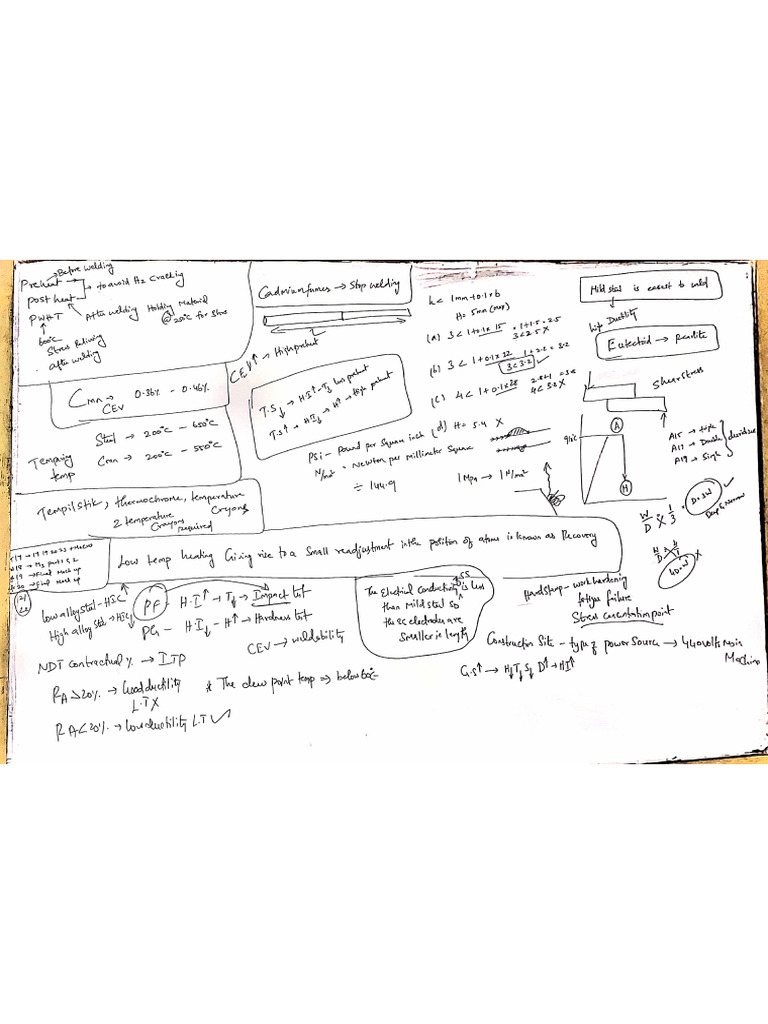 Before welding
Preheat
post heat → to avoid H2 Cracking
PWHT After welding Holding Material
@ 250°C for 5hrs
600°C
Stress Relieving
after welding
Cmn → 0.36% - 0.46%
CEV
Steel → 200°C - 650°C
Tempering
temp
Cmn → 200°C - 550°C
Tempilstik, thermochrome, temperature
Crayons
2 temperature
Crayons
required
Cadmium fumes → Stop welding
CEV↑ → High preheat
T.S↓ → H.I↑ - T↓ low preheat
T.S↑ → HI↓ → H↑ → High preheat
PSi - Pound per Square inch
N/mm² = Newton per millimeter Square
÷ 144.9
h < 1mm + 0.1 × b
H = 5mm (max)
(a) 3 < 1 + 0.1 × 15 = 1 + 1.5 = 2.5
3 < 2.5 X
(b) 3 < 1 + 0.1 × 22 1 + 2.2 = 3.2
3 < 3.2 ✓
(c) 4 < 1 + 0.1 × 28 2.8 + 1 = 3.8
4 < 3.8 X
(d) H = 5.4 X
1 Mpa → 1 N/m²
Mild steel is easiest to weld
high Ductility
Eutectoid → Pearlite
Shear stress
A
H
A15 → high
A17 → Double
A19 → Single
W/D = 1/3
D = 3W ✓
Deep & Narrow
X
Low temp heating Giving rise to a Small readjustment in the position of atoms is known as Recovery
low alloy steel - HIC↑
High alloy steel → HIC↓
PF H.I↑ → T↓ → Impact test
PG - HI↓ - H↑ → Hardness test
CEV → weldability
The Electrical Conductivity of SS is less
than Mild steel so
the SS electrodes are
Smaller in length
Hard Stamp - work hardening
fatigue failure
Stress concentration point
Construction Site - type of power Source → 440 volts Main
Machine
G.S↑ → H↓ T↓ S↓ D↑ → HI↑
NDT contractual % → ITP
RA > 20% → Good ductility
L.T X
* The dew point temp → below 60°C
RA < 20% → low ductility L.T ✓